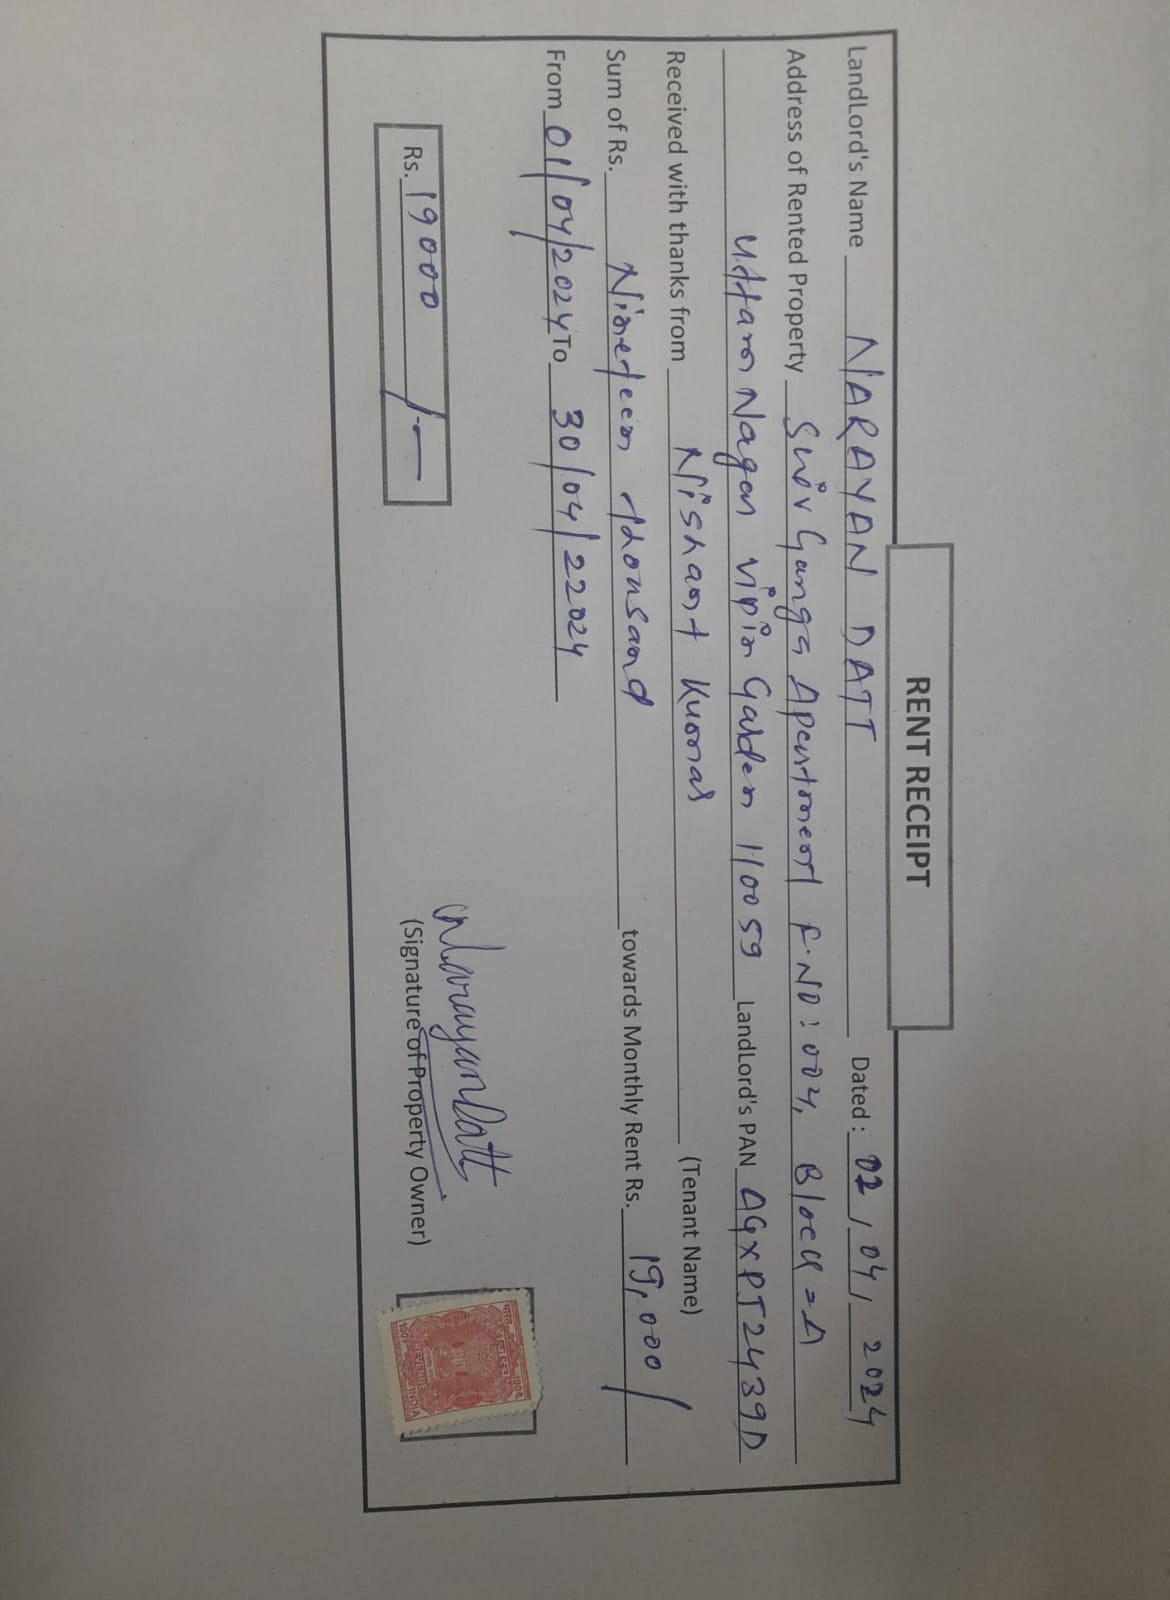 RENT RECEIPT
LandLord's Name NARAYAN DATT Dated : 02 / 04 / 2024
Address of Rented Property Shiv Ganga Apartment F.NO: 004, Block - A
Uttam Nagar Vipin Garden 110059 LandLord's PAN AGXPT2439D
Received with thanks from Nishant Kumar (Tenant Name)
Sum of Rs. Nineteen thousand towards Monthly Rent Rs. 19,000/
From 01/04/2024 To 30/04/22024
Rs. 19000/-
Narayan Datt
(Signature of Property Owner)
भारत
REVENUE
INDIA